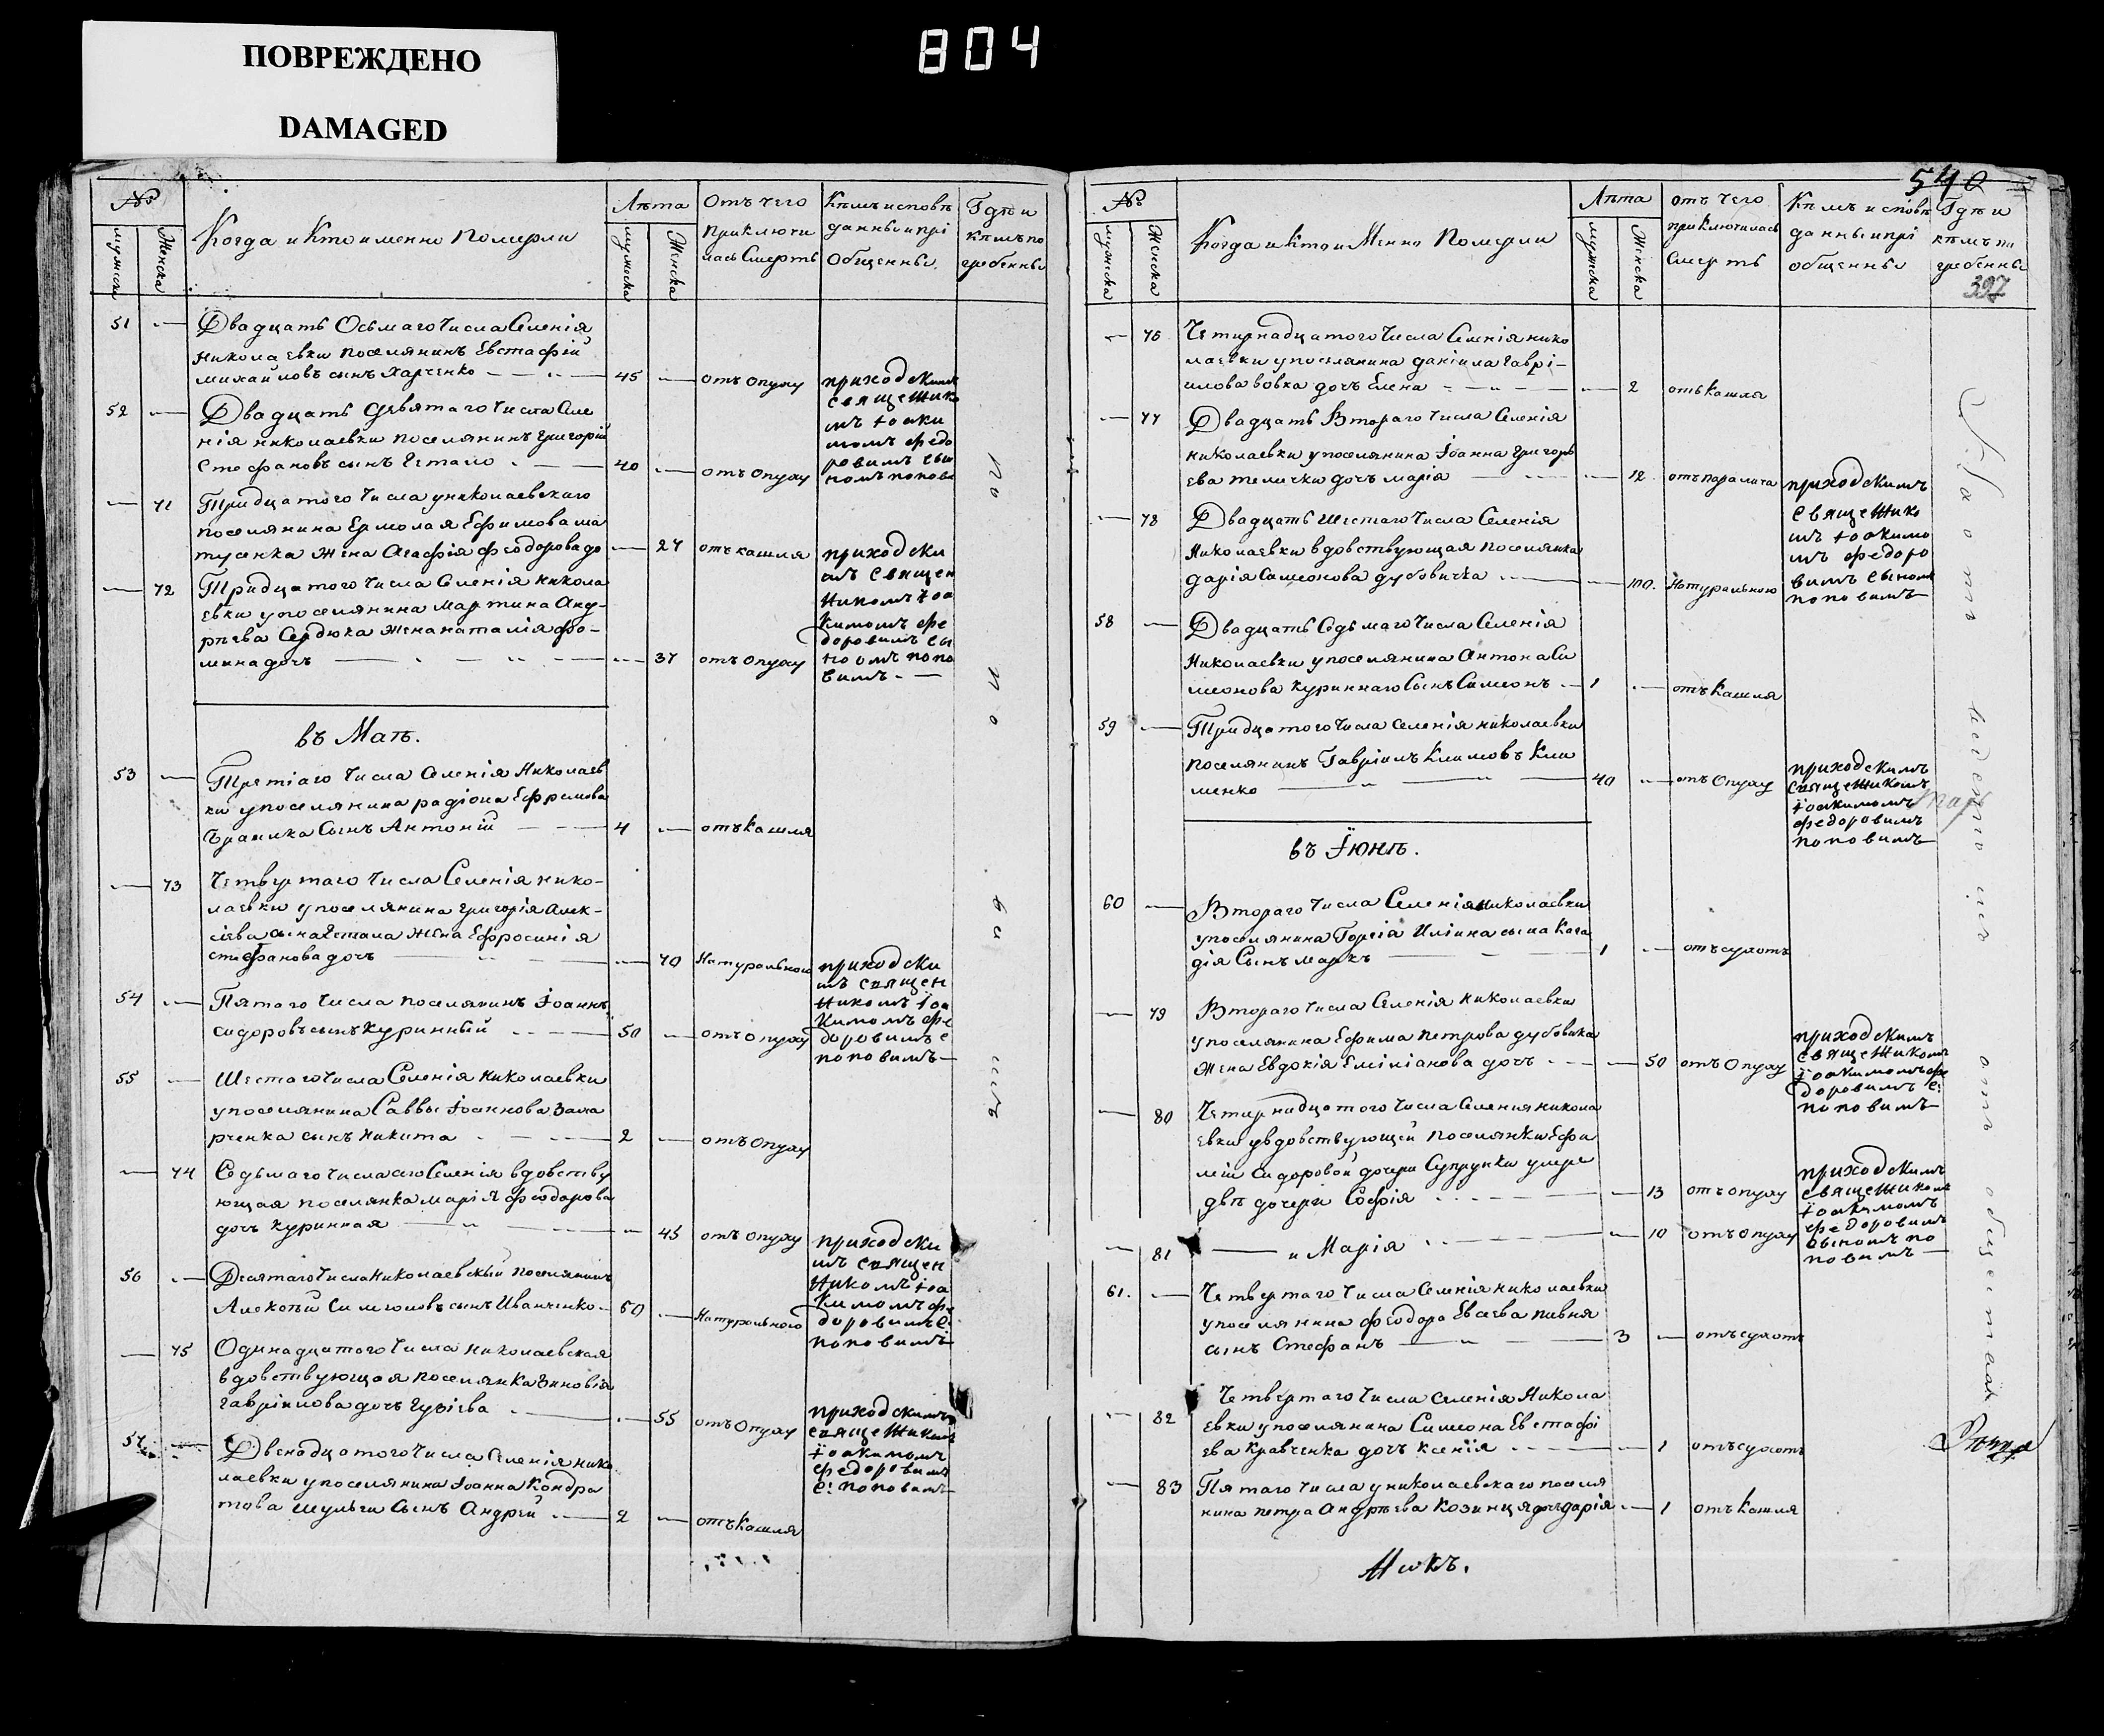 ПОВРЕЖДЕНО
DAMAGED
804
№
мужска
Женска
Когда и Кто именно Померли
Лѣта
мужеска
Женска
Отъ чего
приключи
лась Смерть
Кѣмъ исповѣ
данные и прі
Общенные.
Гдѣ и
кѣмъ по
гребенны
51
Двадцать Осьмаго Числа Селенія
Николаевки поселянинъ Евстафій
михайловъ сынъ Харченко
45
отъ опуху
приходскимъ
священико
мъ Іоаки
момъ федо
ровимъ сы
номъ попови
52
Двадцать девятаго Числа Селе
нія николаевки поселянинъ григорій
Стефановъ сынъ
40
отъ опуху
71
Тридцатого Числа у николаевскаго
поселянина Ермолая Ефимова ма
тусенка Жена Агафія феодорова до
27
отъ кашля
приходски
мъ священ
никомъ Іоа
кимомъ фе
доровимъ сы
номъ попо
вимъ.
72
Тридцатого Числа Селенія никола
евки у поселянина мартина Анд-
рѣева Сердюка Жена наталія фо-
мина дочь
37
отъ опуху
въ Маѣ.
53
Третіаго Числа Селенія Николаев
ки у поселянина радіона Ефремова
Сынъ Антоній
4
отъ кашля
73
Четвертаго Числа Селенія нико-
лаевки у поселянина григорія алек-
сіева сына Жена Ефросинія
стефанова дочь
70
Натурального
приходски
мъ священ
никомъ Іоа
кимомъ фе
доровимъ с
поповимъ
54
Пятаго Числа поселянинъ Іоаннъ
сидоровъ сынъ куринный
50
отъ опуху
55
Шестаго Числа Селенія николаевки
у поселянина Саввы Іоаннова Заха
рченка сынъ никита
2
отъ опуху
74
Седьмаго Числа Селенія вдовству
ющая поселянка марія феодорова
дочь куринная
45
отъ опуху
приходски
мъ священ
никомъ Іоа
кимомъ фе
доровимъ с
поповимъ
56
Десятаго Числа Николаевскый поселянинъ
Алексѣй Симеоновъ сынъ Иванченко
60
Натурального
75
Одинадцатого Числа николаевская
вдовствующая поселянка Зиновія
гавріилова дочь гузіева
55
отъ Опуху
приходскимъ
священикомъ
Іоакимомъ
федоровимъ
с: поповимъ
57
Двенадцатого Числа Селенія нико
лаевки у поселянина Іоанна Кондра
това шульги Сынъ Андрей
2
отъ кашля
540
№
мужеска
Женска
Когда и Кто и Менно Померли
Лѣта
мужеска
Женска
отъ чего
приключилась
Смерть
Кѣмъ исповѣ
данные и прі
общенные
Гдѣ и
кѣмъ по
гребенны
397
76
Четирнадцатого Числа Селенія нико
лаевки у поселянина даніила гаврі-
илова вовка дочь Елена
2
отъ кашля
77
Двадцать Втораго Числа Селенія
николаевки у поселянина Іоанна григорь
ева телички дочь марія
12
отъ паралича
приходскимъ
священико
мъ Іоакимо
мъ федоро
вимъ сыномъ
поповимъ
78
Двадцать шестаго Числа Селенія
Николаевки вдовствующая поселянка
дарія Самсонова дубовичка
100.
Натурального
58
Двадцать Седьмаго Числа Селенія
Николаевки у поселянина Антона Си
меонова куриннаго Сынъ Симеонъ
1
отъ кашля
59
Тридцатого Числа селенія николаевки
поселянинъ Гавріилъ Климовъ Кли
менко
40
отъ Опуху
приходскимъ
священикомъ
Іоакимомъ
федоровимъ
поповимъ
въ Іюнѣ.
60
Втораго Числа Селенія николаевки
у поселянина Георгія Иліина сына Кага
дія Сынъ маркъ
1
отъ сухотъ
79
Втораго Числа Селенія николаевки
у поселянина Ефима петрова дубовика
жена Евдокія Еміліанова дочь
50
отъ Опуху
приходскимъ
священикомъ
Іоакимомъ фе
доровимъ с:
поповимъ
80
Четирнадцатого Числа Селенія никола
евки у вдовствующей поселянки Ефи
міи сидоровой дочери Супрунки умре
двѣ дочери Софія
13
отъ опуху
приходскимъ
священикомъ
Іоакимомъ
федоровимъ
сыномъ по
повимъ
81
и Марія
10
отъ Опуху
61.
Четвертаго Числа Селенія николаевки
у поселянина феодора Евсіева пивня
сынъ Стефанъ
3
отъ сухотъ
82
Четвертаго Числа селенія Никола
евки у поселянина Симеона Евстафі
ева Кравченка дочь ксенія
1
отъ сухотъ
83
Пятаго Числа у николаевскаго поселя
нина петра Андрѣева Козинця дочь дарія
1
отъ кашля